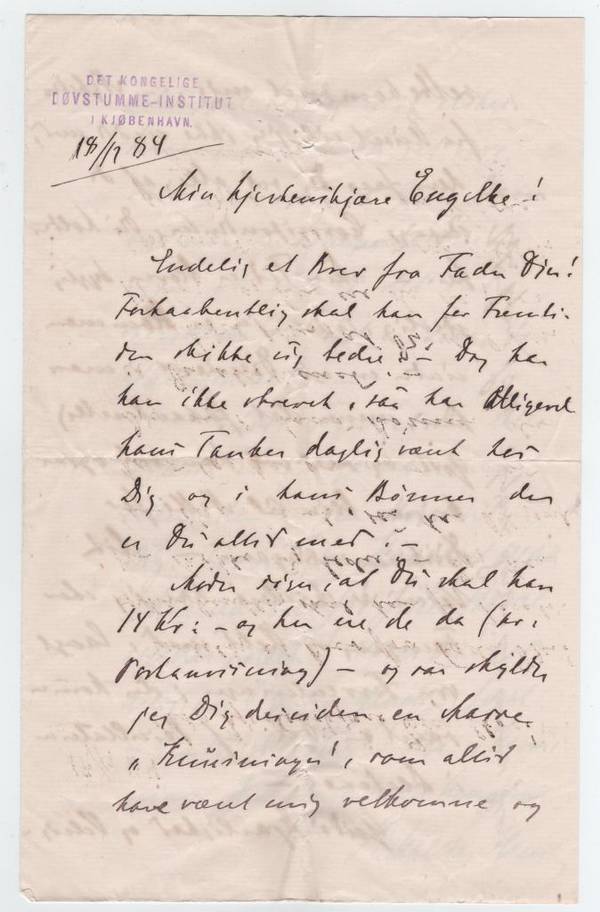 DET KONGELIGE
DØVSTUMME-INSTITUT
I KJØBENHAVN.
18/12 84
Min hjertenskjære Engelke!
Endelig et Brev fra Fader Din!
Forhaabentlig skal han for Fremti-
den skikke sig bedre! – Dog har
han ikke skrevet, saa har alligevel
hans Tanker daglig været hos
Dig og i hans Bønner der
er Du altid med. –
Moder siger, at Du skal han
14 Kr: – og her ere de da (pr.
Postanvisning) – og saa skylder
jeg Dig desuden en Masse
som altid
have været mig velkomne og